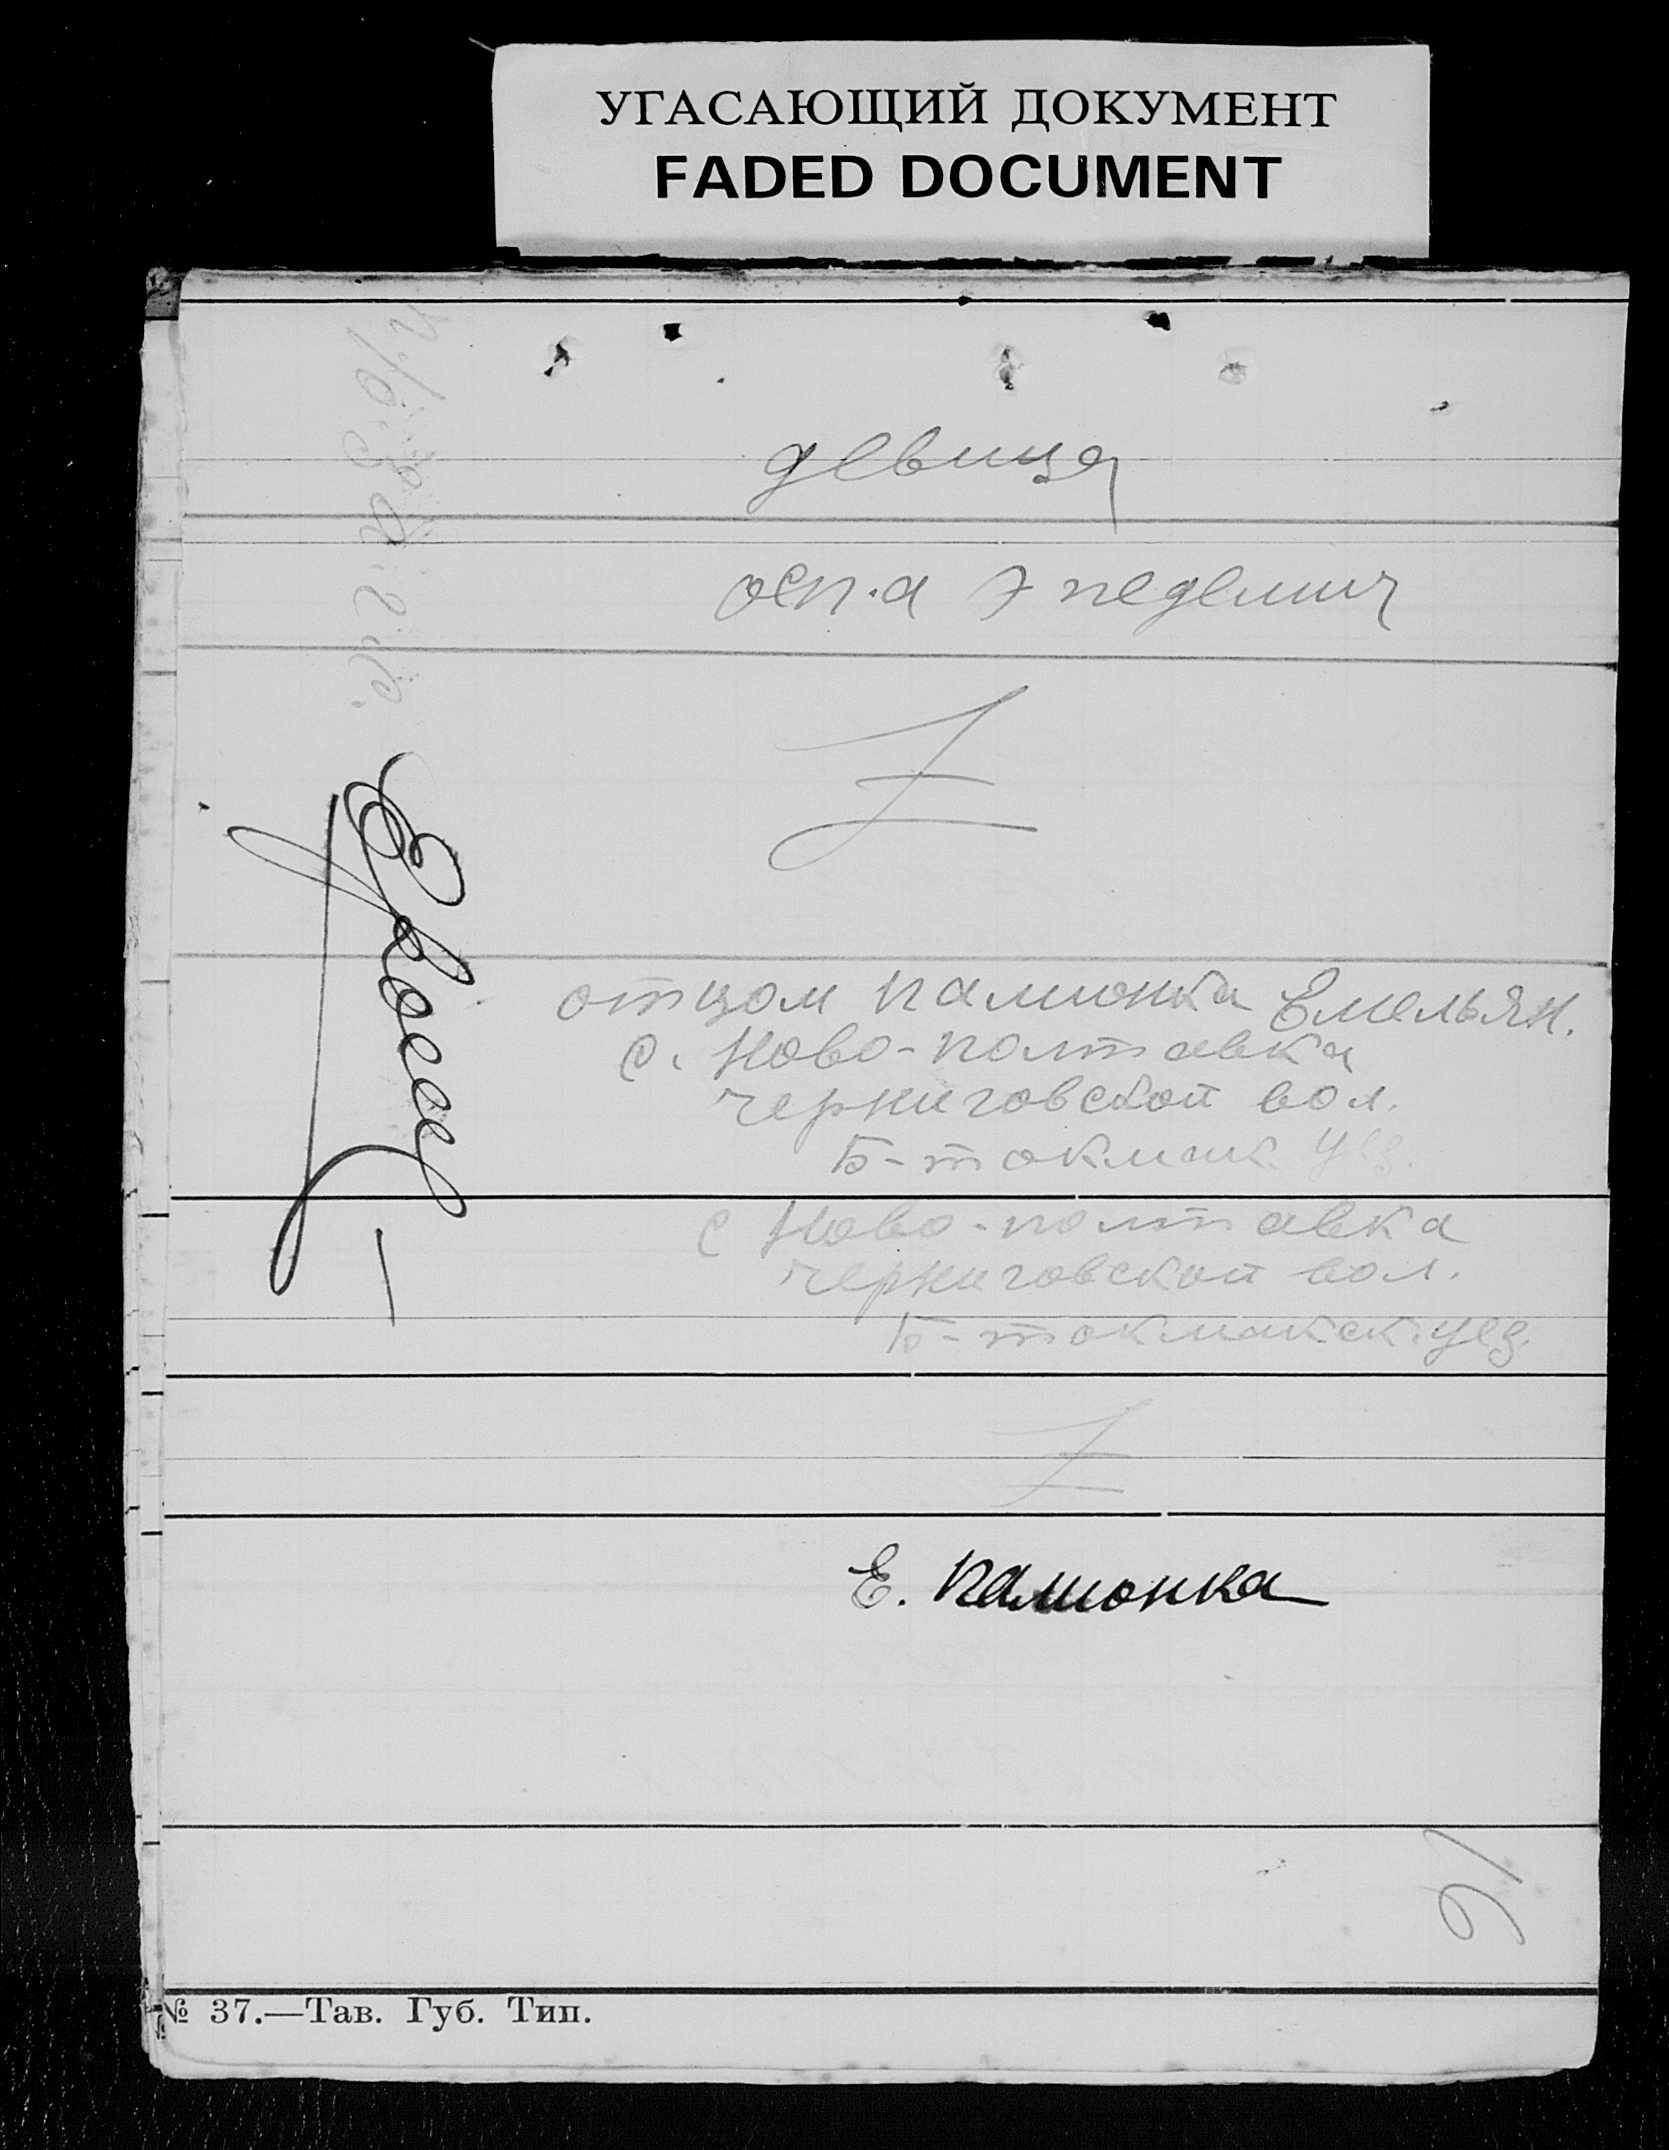 УГАСАЮЩИЙ ДОКУМЕНТ
FADED DOCUMENT
девица
осп.а 7 неделии
отцом Памионка Емельян.
с. Ново-полтавка
черниговской вол.
Б-токмак. уез.
с Ново-полтавка
черниговской вол.
Б-токмакск. уез.
Е. Памионка
91
№ 37.—Тав. Губ. Тип.